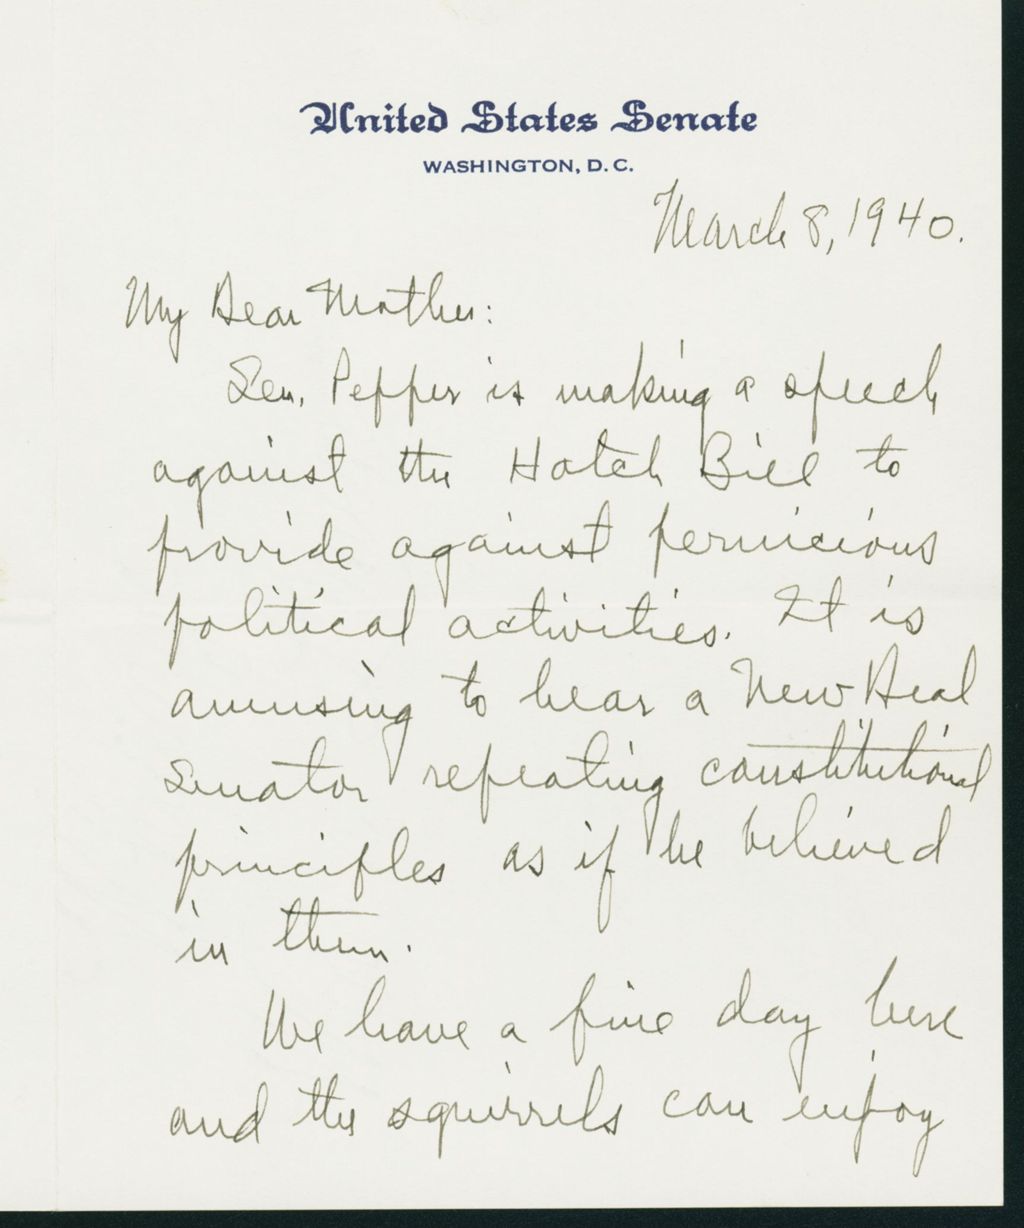 United States Senate
WASHINGTON, D. C.
March 8, 1940.
My Dear Mother:
Sen. Pepper is making a speech
against the Hatch Bill to
provide against pernicious
political activities. It is
amusing to hear a New Deal
Senator repeating constitutional
principles as if he believed
in them.
We have a fine day here
and the squirrels can enjoy